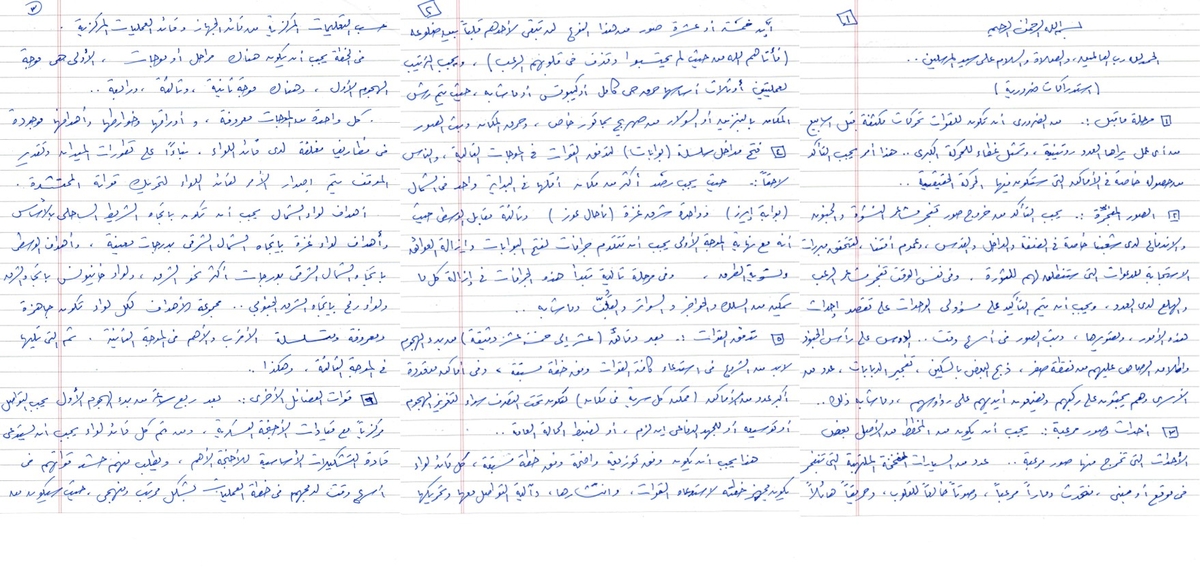 ١
بسم الله الرحمن الرحيم
الحمد لله رب العالمين، والصلاة والسلام على سيد المرسلين..
(استدراكات ضرورية)
١ مرحلة ما قبل :. من الضروري أن تكون للقوات تحركات مكثفة قبل الأسابيع
من أي عمل يراها العدو روتينية، وتشكل غطاء للحركة الكبرى.. هذا أمر يجب التأكد
من حصوله خاصة في الأماكن التي ستكون منها الحركة الحقيقية..
٢ الصور المفجرة :. يجب التأكد من خروج صور تفجر مشاعر النشوة والجنون
والاندفاع لدى شعبنا خاصة في الضفة والداخل والقدس، وعموم أمتنا، لتتحقق مبررات
الاستجابة للدعوات التي ستنطلق لهم للثورة. وفي نفس الوقت تفجر مشاعر الرعب
والهلع لدى العدو، ويجب أن يتم التأكيد على مسؤولي الوحدات على تقصد إحداث
هذه الأمور، وتصويرها، وبث الصور في أسرع وقت.. الدوس على رأس الجنود
وإطلاق الرصاص عليهم من نقطة صفر، ذبح البعض بالسكين، تفجير الدبابات، عدد من
الأسرى وهم يجثون على ركبهم ويضعون أيديهم على رؤوسهم، وما شابه ذلك..
٣ أحداث وصور مرعبة :. يجب أن يكون من المخطط من الأصل بعض
الأحداث التي تخرج منها صور مرعبة.. عدد من السيارات المفخخة الملتهبة التي تنفجر
في موقع أو مبنى، فتحدث دماراً مرعباً، وصوتاً خالعاً للقلوب، وحريقاً هائلاً
٢
أيّة خمسة أو عشرة صور من هذا النوع لن تبقي لأحدهم قلباً بين ضلوعه
(فأتاهم الله من حيث لم يحتسبوا وقذف في قلوبهم الرعب)، ويجب الترتيب
لعمليتين أو ثلاث أساسها حرق حي كامل أو كيبوتس أو ما شابه، حيث يتم رش
المكان بالبنزين أو السولار من صهريج بماتور خاص، وحرق المكان وبث الصور
٤ فتح مداخل سلسلة (بوابات) لتدفق القوات في الموجات التالية، والناس
لاحقاً :. حيث يجب رصد أكثر من مكان أقلها في البداية واحد في الشمال
(بوابة إيرز) وواحدة شرق غزة (ناحال عوز) وثالثة مقابل الوسطى حيث
أنه مع نهاية الموجة الأولى يجب أن تتقدم جرافات لفتح البوابات وإزالة العوائق
وتسوية الطرق، وفي مرحلة تالية تبدأ هذه الجرافات في إزالة كل ما
تتمكن من السلك والحواجز والسواتر والقبب وما شابه..
٥ تدفق القوات :. بعد دقائق (عشر إلى خمسة عشر دقيقة) من بدء الهجوم
لا بد من الشروع في استدعاء كافة القوات وفق خطة مسبقة، وفي أماكن متعددة
أكبر عدد من الأماكن (ممكن كل سرية في مكان) لتكون تحت التصرف سواء لتعزيز الهجوم
أو توسيعه أو للجهد الدفاعي إن لزم، أو لضبط الحالة العامة..
هنا يجب أن يكون وفق توزيعة واضحة وفق خطة مسبقة، كل قائد لواء
يكون مجهز خطته لاستدعاء القوات، وانتشارها، وآلية التواصل معها وتحريكها
٣
حسب التعليمات المركزية من قائد الجهاز وقائد العمليات المركزية.
في الخطة يجب أن يكون هناك مراحل أو موجات، الأولى هي موجة
الهجوم الأول، وهناك موجة ثانية، وثالثة، ورابعة..
كل واحدة من الموجات معروفة، وأوراقها وخوارطها وأهدافها موجودة
في مظاريف مغلقة لدى قائد اللواء. بناءً على تطورات الميدان وتقدير
الموقف يتم إصدار الأمر لقائد اللواء لتحريك قواته المحتشدة.
أهداف لواء الشمال يجب أن تكون باتجاه الشريط الساحلي بالأساس
وأهداف لواء غزة باتجاه الشمال الشرقي بدرجات معينة، وأهداف الوسطى
باتجاه الشمال الشرقي بدرجات أكثر نحو الشرق، ولواء خانيونس باتجاه الشرق
ولواء رفح باتجاه الشرق الجنوبي.. مجموعة الأهداف لكل لواء تكون جاهزة
ومعروفة ومتسلسلة الأقرب والأهم في الموجة الثانية. ثم التي تليها
في الموجة الثالثة، وهكذا..
٦ قوات الفصائل الأخرى :. بعد ربع ساعة من بدء الهجوم الأول يجب التواصل
مركزياً مع قيادات الأجنحة العسكرية، ومن ثم كل قائد لواء يجب أن يستدعي
قادة التشكيلات الأساسية للأجنحة الأهم، ويطلب منهم حشد قواتهم في
أسرع وقت لدمجهم في خطة العمليات بشكل مرتب ومنهجي. حيث سيكون من